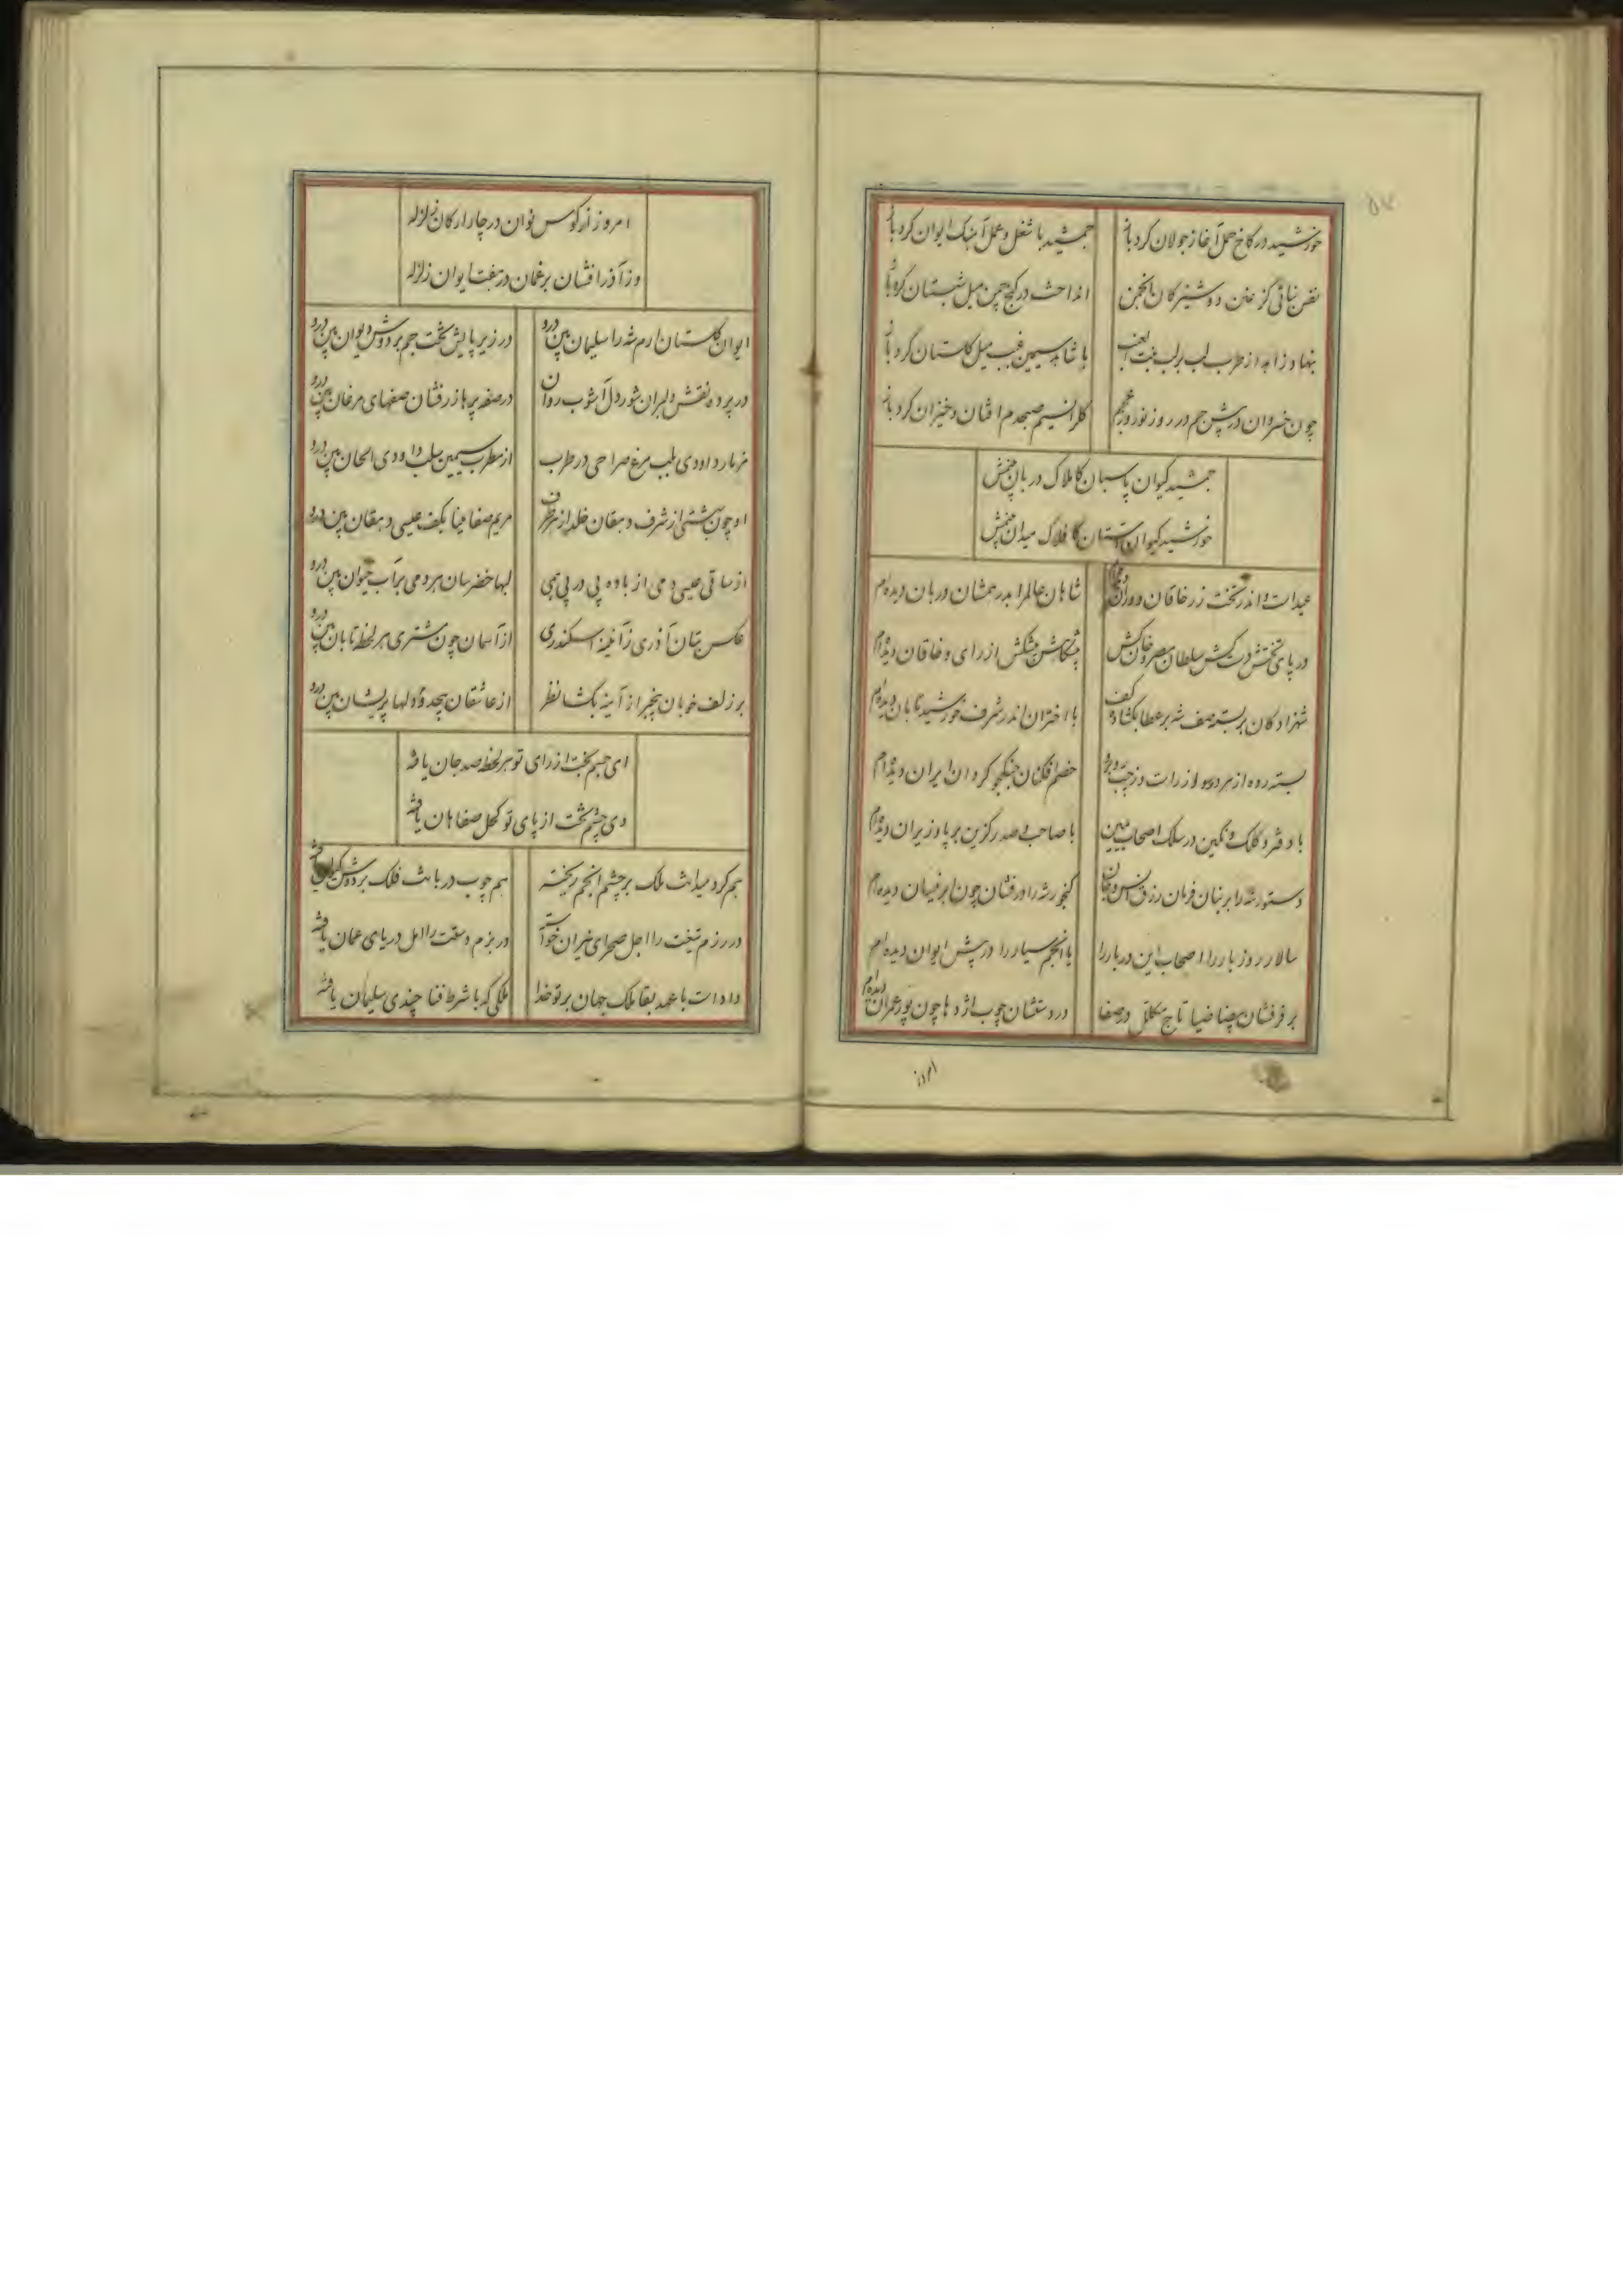 خورشید در کاخ حمل آغاز جولان کرد باز
جمشید با شغل و عمل آهنگ ایوان کرد باز
نقش نباتی کز دوشیزگان انجمن
انداخت در کنج چمن میل شبستان کرد باز
بنهاد زاهد از طرب لب بر لب بنت العنب
با شاهد سیمین غبب میل گلستان کرد باز
چون خسروان در پیش جم در روز نوروز عجم
گلرا نسیم صبحدم افتان و خیزان کرد باز
جمشید کیوان پاسبان کاملاک دربان بینمش
خورشید کیوان آستان کافلاک میدان بینمش
عید است و اندر تخت زر خاقان دوران دیده‌ام
شاهان عالم را بدر همشان دربان دیده‌ام
در پای تختش دست کش سلطان مصر و خان کش
پیشکش از رای و خاقان دیده‌ام
شهزادگان بر بسته صف شه بر عطا بگشاده کف
با اختران اندر شرف خورشید تابان دیده‌ام
بسته رده از هر رده از راست وز چپ
خصم افکنان جنگجو گردان ایران دیده‌ام
با دفتر و کلک و نگین در سلک اصحاب یمین
با صاحب صدر گزین بر پا وزیران دیده‌ام
دستور شه را بر بنان فرمان رزق انس و جان
گنجور شه را درفشان چون ابر نیسان دیده‌ام
سالار روز بار را اصحاب این دربار را
یا انجم سیار را در پیش ایوان دیده‌ام
بر فرقشان بیضا ضیا تاج مکلل در صفا
در دستشان چوب اژدها چون پور عمران دیده‌ام
امروز
امروز از کوس نوان در چار ارکان زلزله
وز آذر افشان برغمان در هفت ایوان زلزله
ایوان گلستان ارم شه را سلیمان بین درو
در زیر پایش تخت جم بر دوش دیوان بین درو
در پرده نقش دلبران شور دل آشوب روان
در صفه پرها زرفشان صفهای مرغان بین درو
مزمار داودی بلب مرغ صراحی در طرب
از مطرب سیمین سلب داودی الحان بین درو
او چون بهشتی از شرف دهقان خلد از هر طرف
مریم صفا مینا بکف عیسی دهقان بین درو
از ساقی عیسی دمی از باده پی در پی همی
لبها خضرسان هر دمی بر آب حیوان بین درو
عکس بتان آذری ز آئینه اسکندری
از آسمان چون مشتری هر لحظه تابان بین درو
بر زلف خوبان بیخبر از آینه بگشا نظر
از عاشقان بیحد و دلها پریشان بین درو
ای جسم بخت از رای تو هر لحظه صد جان یافته
وی چشم تخت از پای تو کحل صفاهان یافته
هم گرد میدانت ملک بر چشم انجم ریخته
هم چوب دربانت فلک بر دوش یافته
در رزم تیغت را اجل صحرای نیران خواسته
در بزم دستت را امل دریای عمان یافته
داد است با عهد بقا ملک جهان بر تو خدا
ملکی که با شرط فنا چندی سلیمان یافته